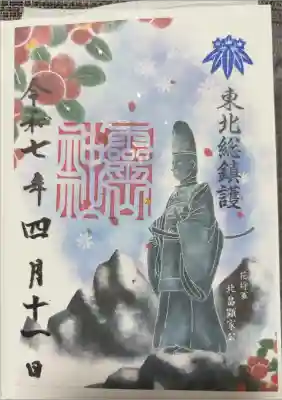 東北総鎮護
花将軍
北畠顕家公
靈山
神社
令和七年四月十一日